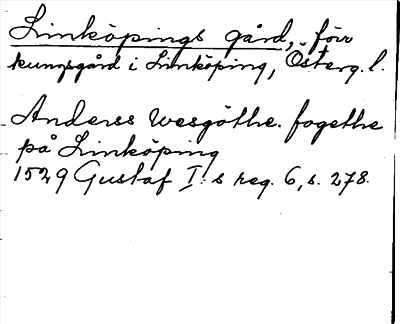 Linköpings gård, förr
kungsgård i Linköping, Österg. l.
Anders Wesgöthe. fogethe
på Linköping
1529 Gustaf I:s reg. 6, s. 278.